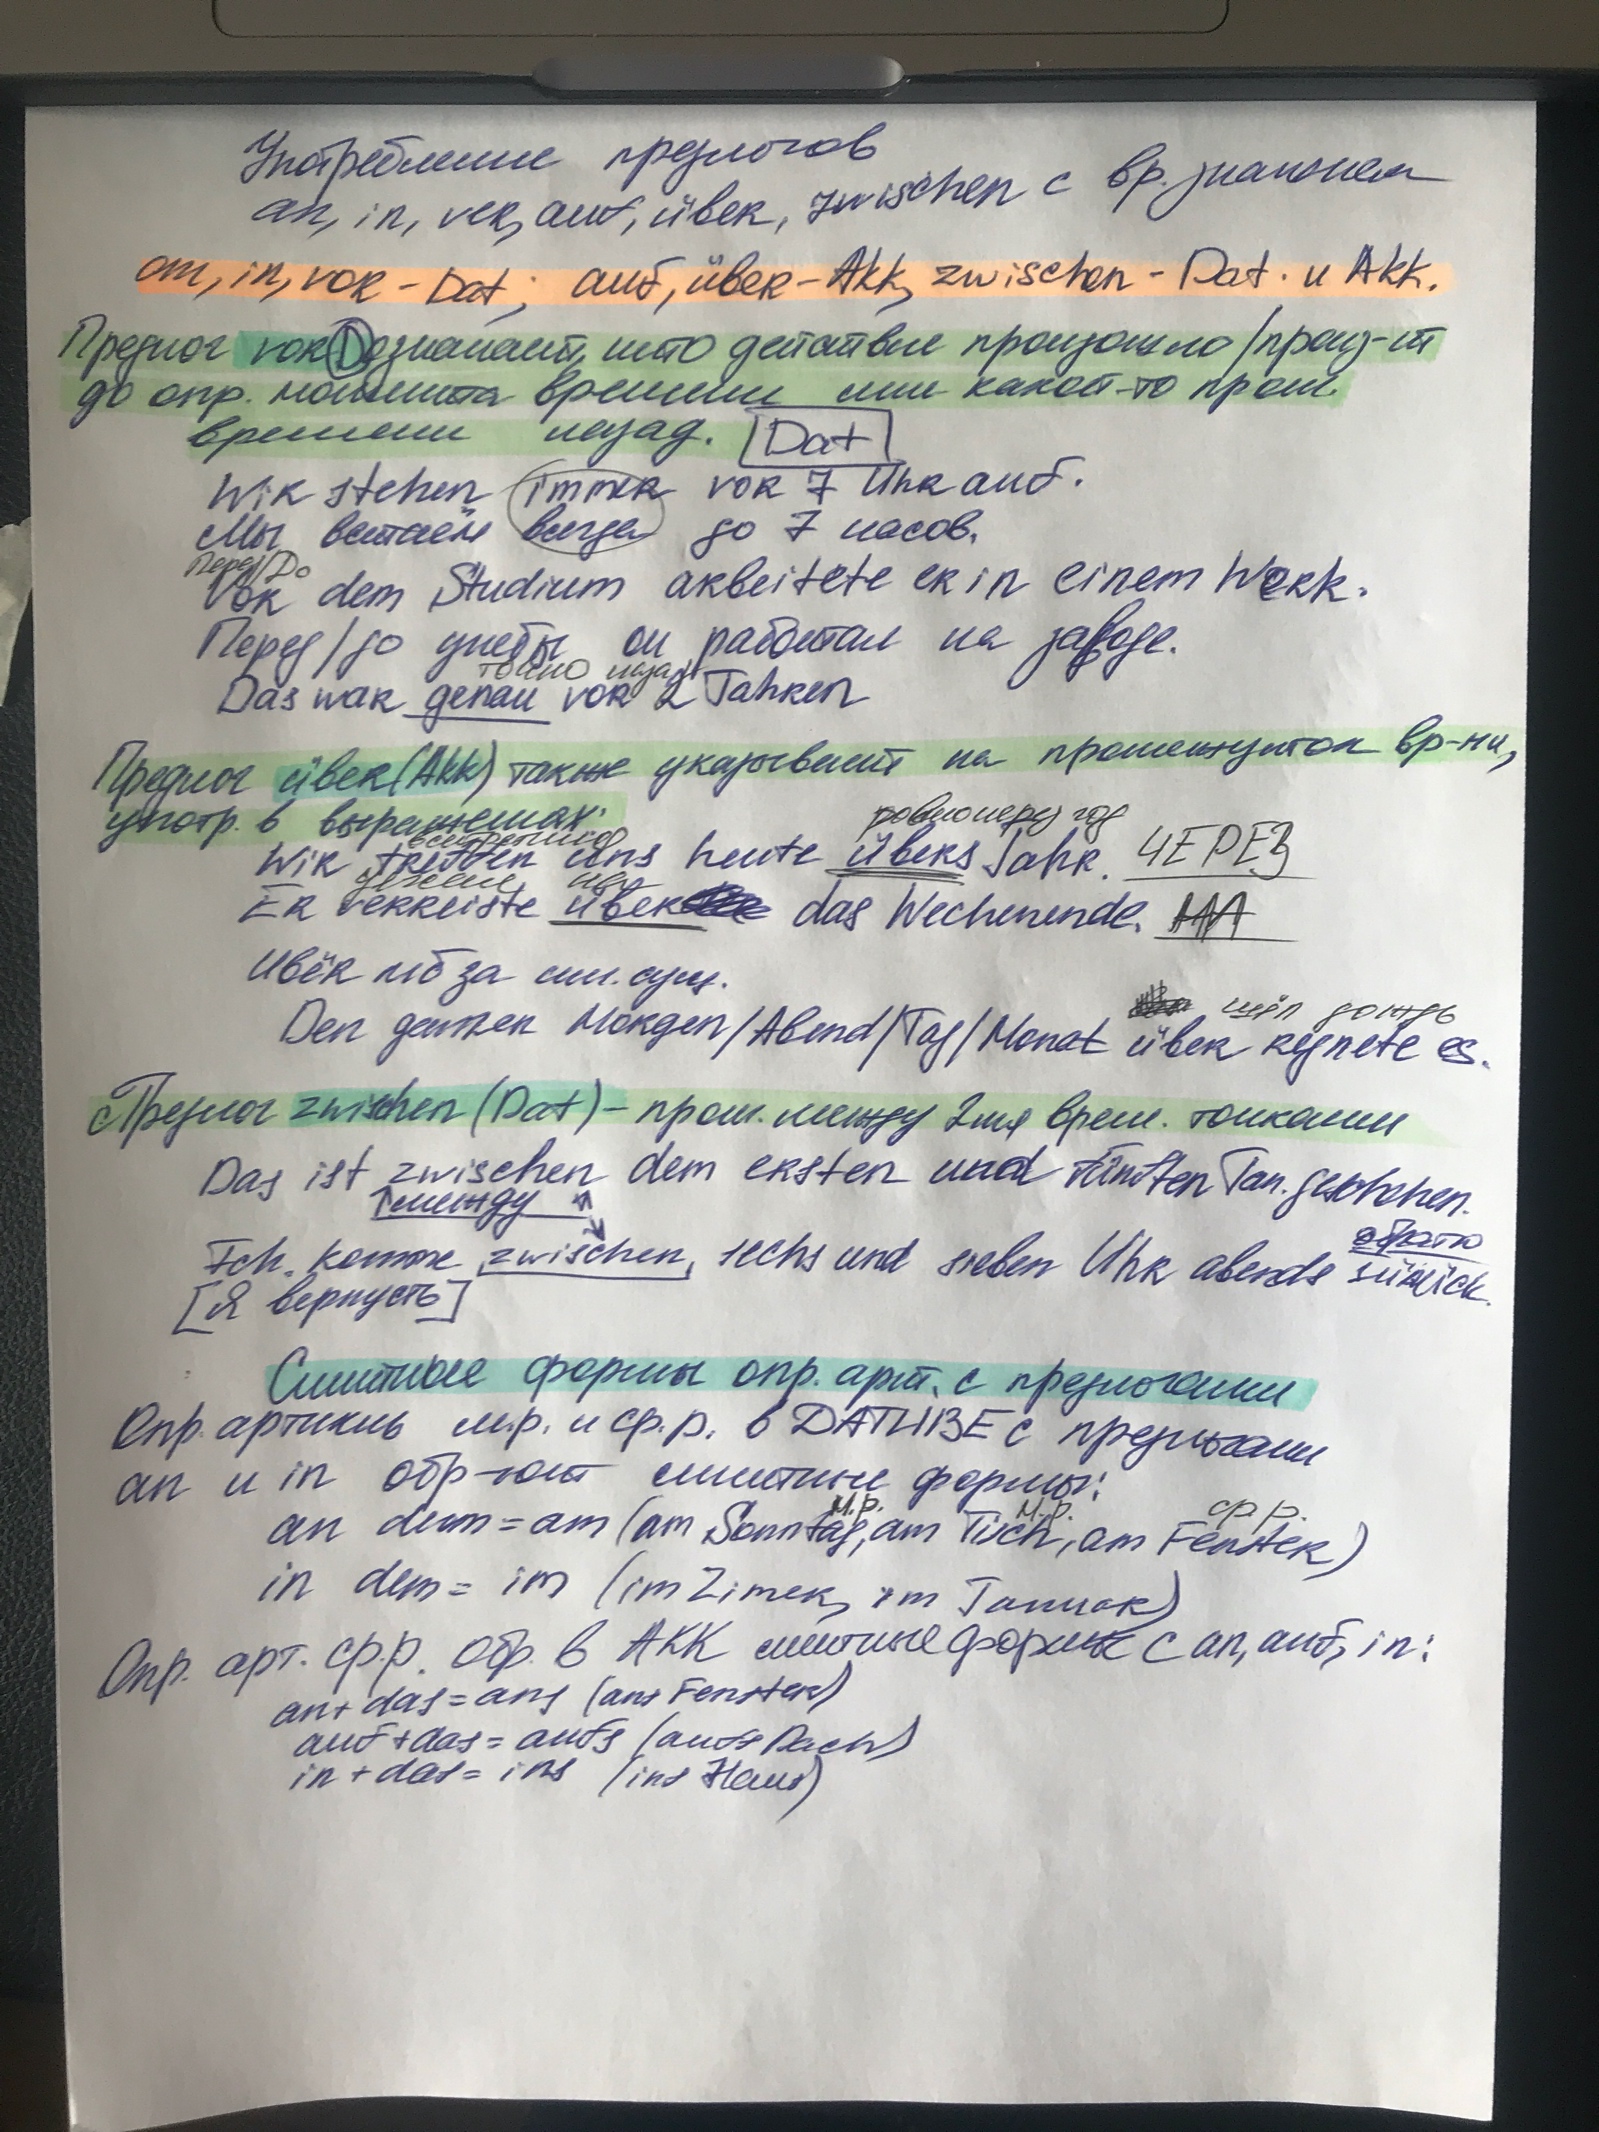 Употребление предлогов
an, in, vor, auf, über, zwischen с вр. значением
an, in, vor - Dat; auf, über - Akk, zwischen - Dat. и Akk.
Предлог vor D означает, что действие произошло/произ-ит
до опр. момента времени или какой-то пром.
времени назад. Dat
Wir stehen immer vor 7 Uhr auf.
Мы встаём всегда до 7 часов.
Перед/До
Vor dem Studium arbeitete er in einem Werk.
Перед/до учебы он работал на заводе.
точно назад
Das war genau vor 2 Jahren
Предлог über (Akk) также указывает на промежуток вр-ни,
употр. в выражениях:
ровно через год
Wir treffen uns heute übers Jahr. ЧЕРЕЗ
на
Er verreiste über das Wochenende. НА
Über мб за им. сущ.
шёл дождь
Den ganzen Morgen/Abend/Tag/Monat über regnete es.
Предлог zwischen (Dat) - пром. между 2мя врем. точками
Das ist zwischen dem ersten und fünften Jan. geschehen.
между
обратно
Ich komme zwischen sechs und sieben Uhr abends zurück.
[Я вернусь]
Слитные формы опр. арт. с предлогами
Опр. артикль м.р. и ср.р. в DATИВЕ с предлогами
an и in обр-ют слитные формы:
м.р. м.р. ср.р.
an dem = am (am Sonntag, am Tisch, am Fenster)
in dem = im (im Zimer, im Januar)
Опр. арт. ср.р. обр. в АКК слитные формы с an, auf, in:
an + das = ans (ans Fenster)
auf + das = aufs (aufs Dach)
in + das = ins (ins Haus)